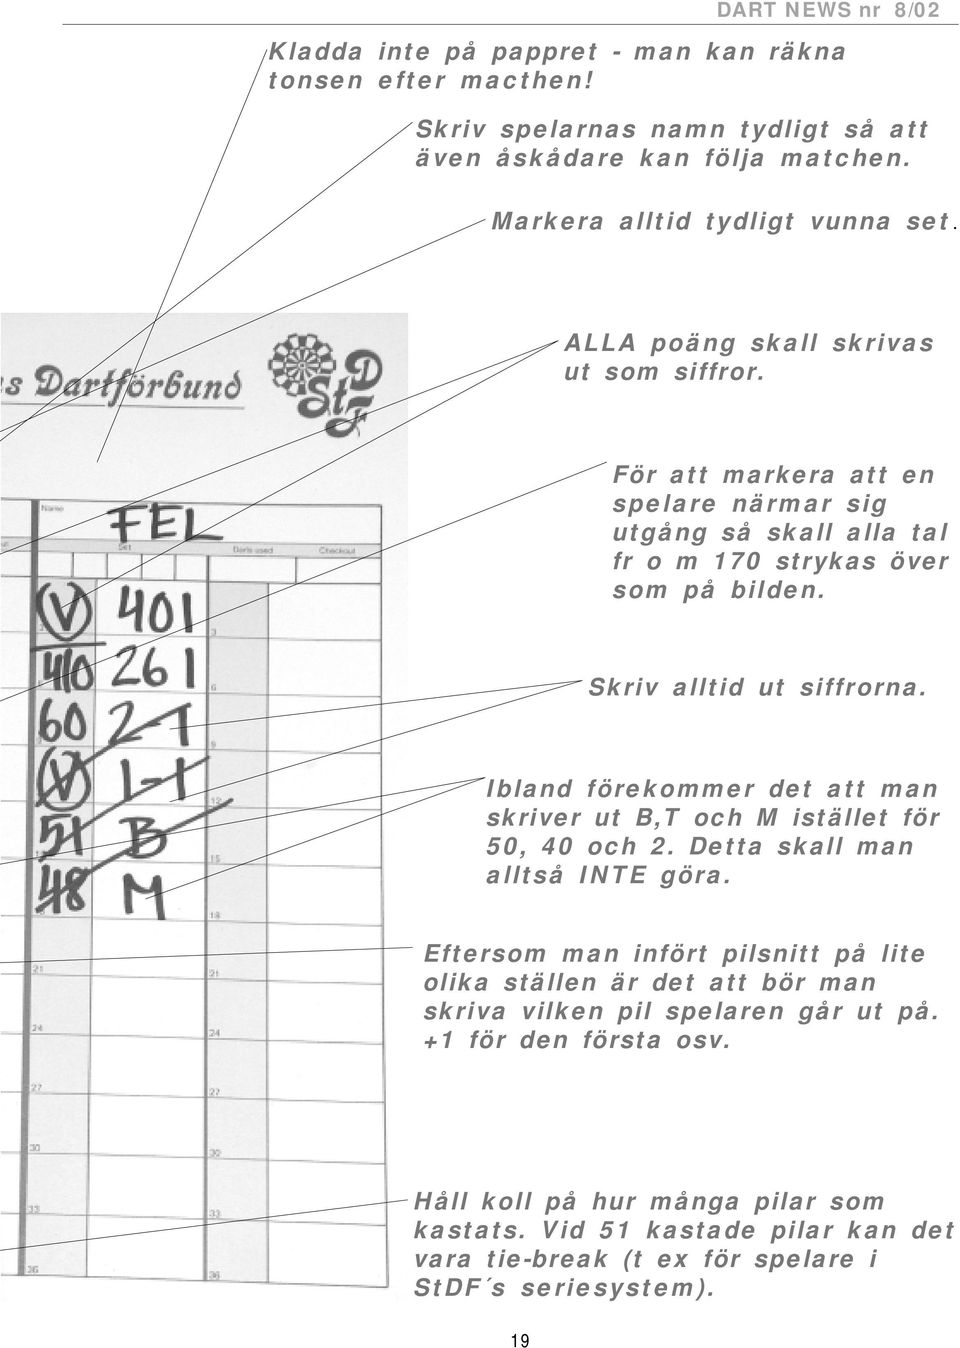 DART NEWS nr 8/02
Kladda inte på pappret - man kan räkna
tonsen efter macthen!
Skriv spelarnas namn tydligt så att
även åskådare kan följa matchen.
Markera alltid tydligt vunna set.
ALLA poäng skall skrivas
ut som siffror.
s Dartförbund
StDF
För att markera att en
spelare närmar sig
utgång så skall alla tal
fr o m 170 strykas över
som på bilden.
Name
FEL
Set
Darts used
Checkout
V 401
3
410 261
6
60 2-1
9
V 1-1
12
51 B
15
48 M
18
Skriv alltid ut siffrorna.
Ibland förekommer det att man
skriver ut B,T och M istället för
50, 40 och 2. Detta skall man
alltså INTE göra.
Eftersom man infört pilsnitt på lite
olika ställen är det att bör man
skriva vilken pil spelaren går ut på.
+1 för den första osv.
21 21
24 24
27 27
30 30
33 33
36 36
Håll koll på hur många pilar som
kastats. Vid 51 kastade pilar kan det
vara tie-break (t ex för spelare i
StDF´s seriesystem).
19